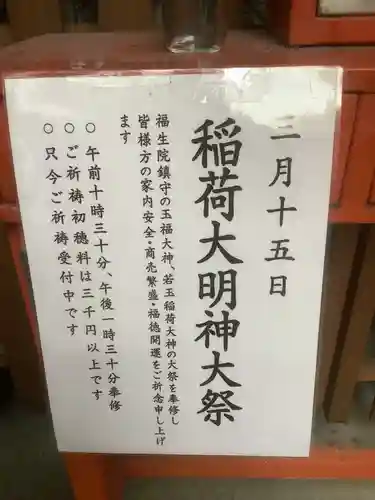 三月十五日
稲荷大明神大祭
福生院鎮守の玉福大神、若玉稲荷大神の大祭を奉修し
皆様方の家内安全・商売繁盛・福徳開運をご祈念申し上げ
ます
○午前十時三十分、午後一時三十分奉修
○ご祈祷初穂料は三千円以上です
○只今ご祈祷受付中です